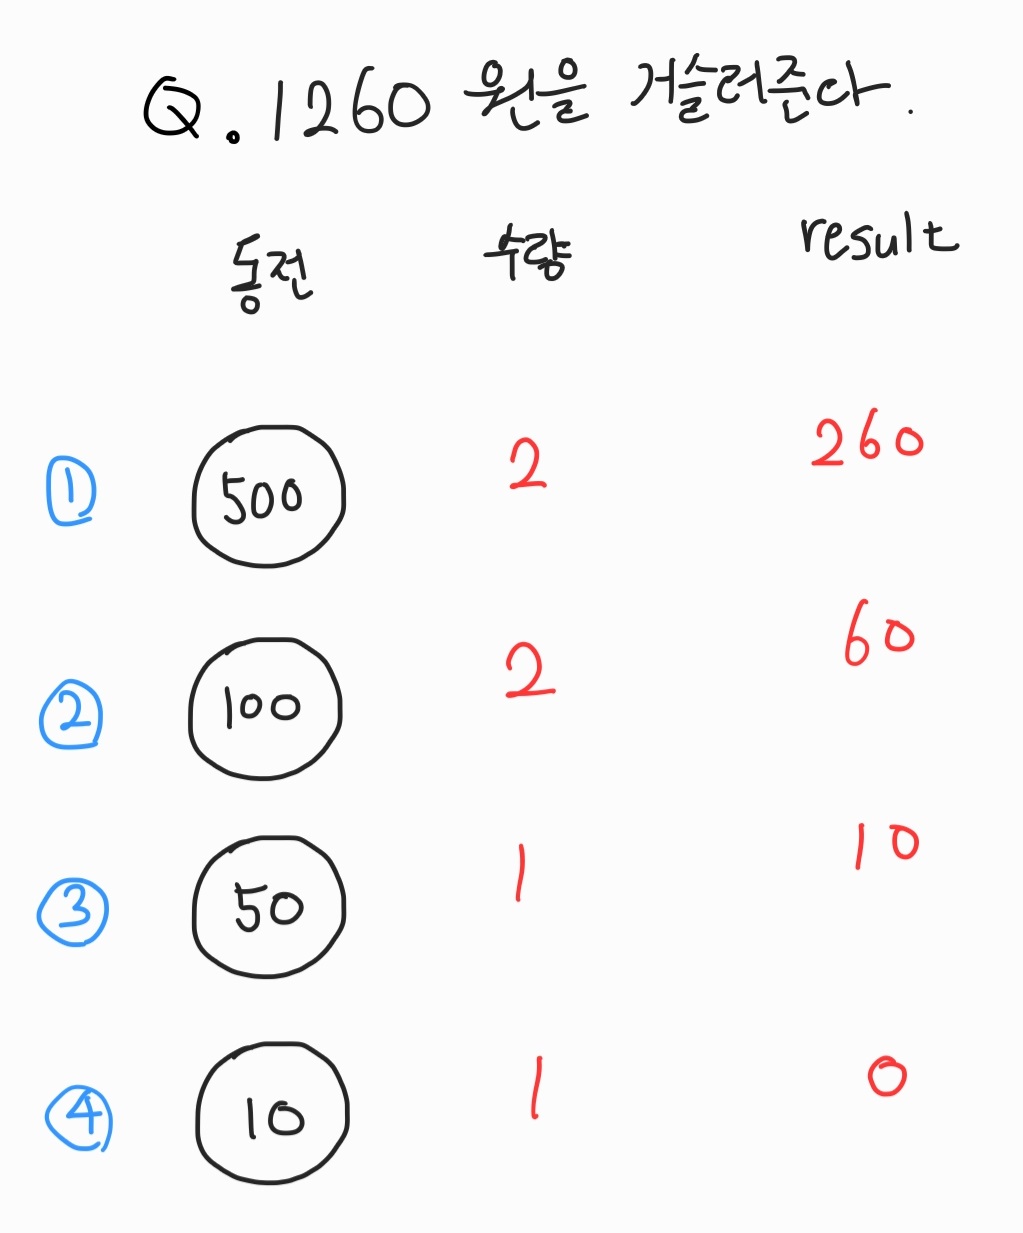 Q. 1260 원을 거슬러준다.
동전 수량 result
① 500 2 260
② 100 2 60
③ 50 1 10
④ 10 1 0